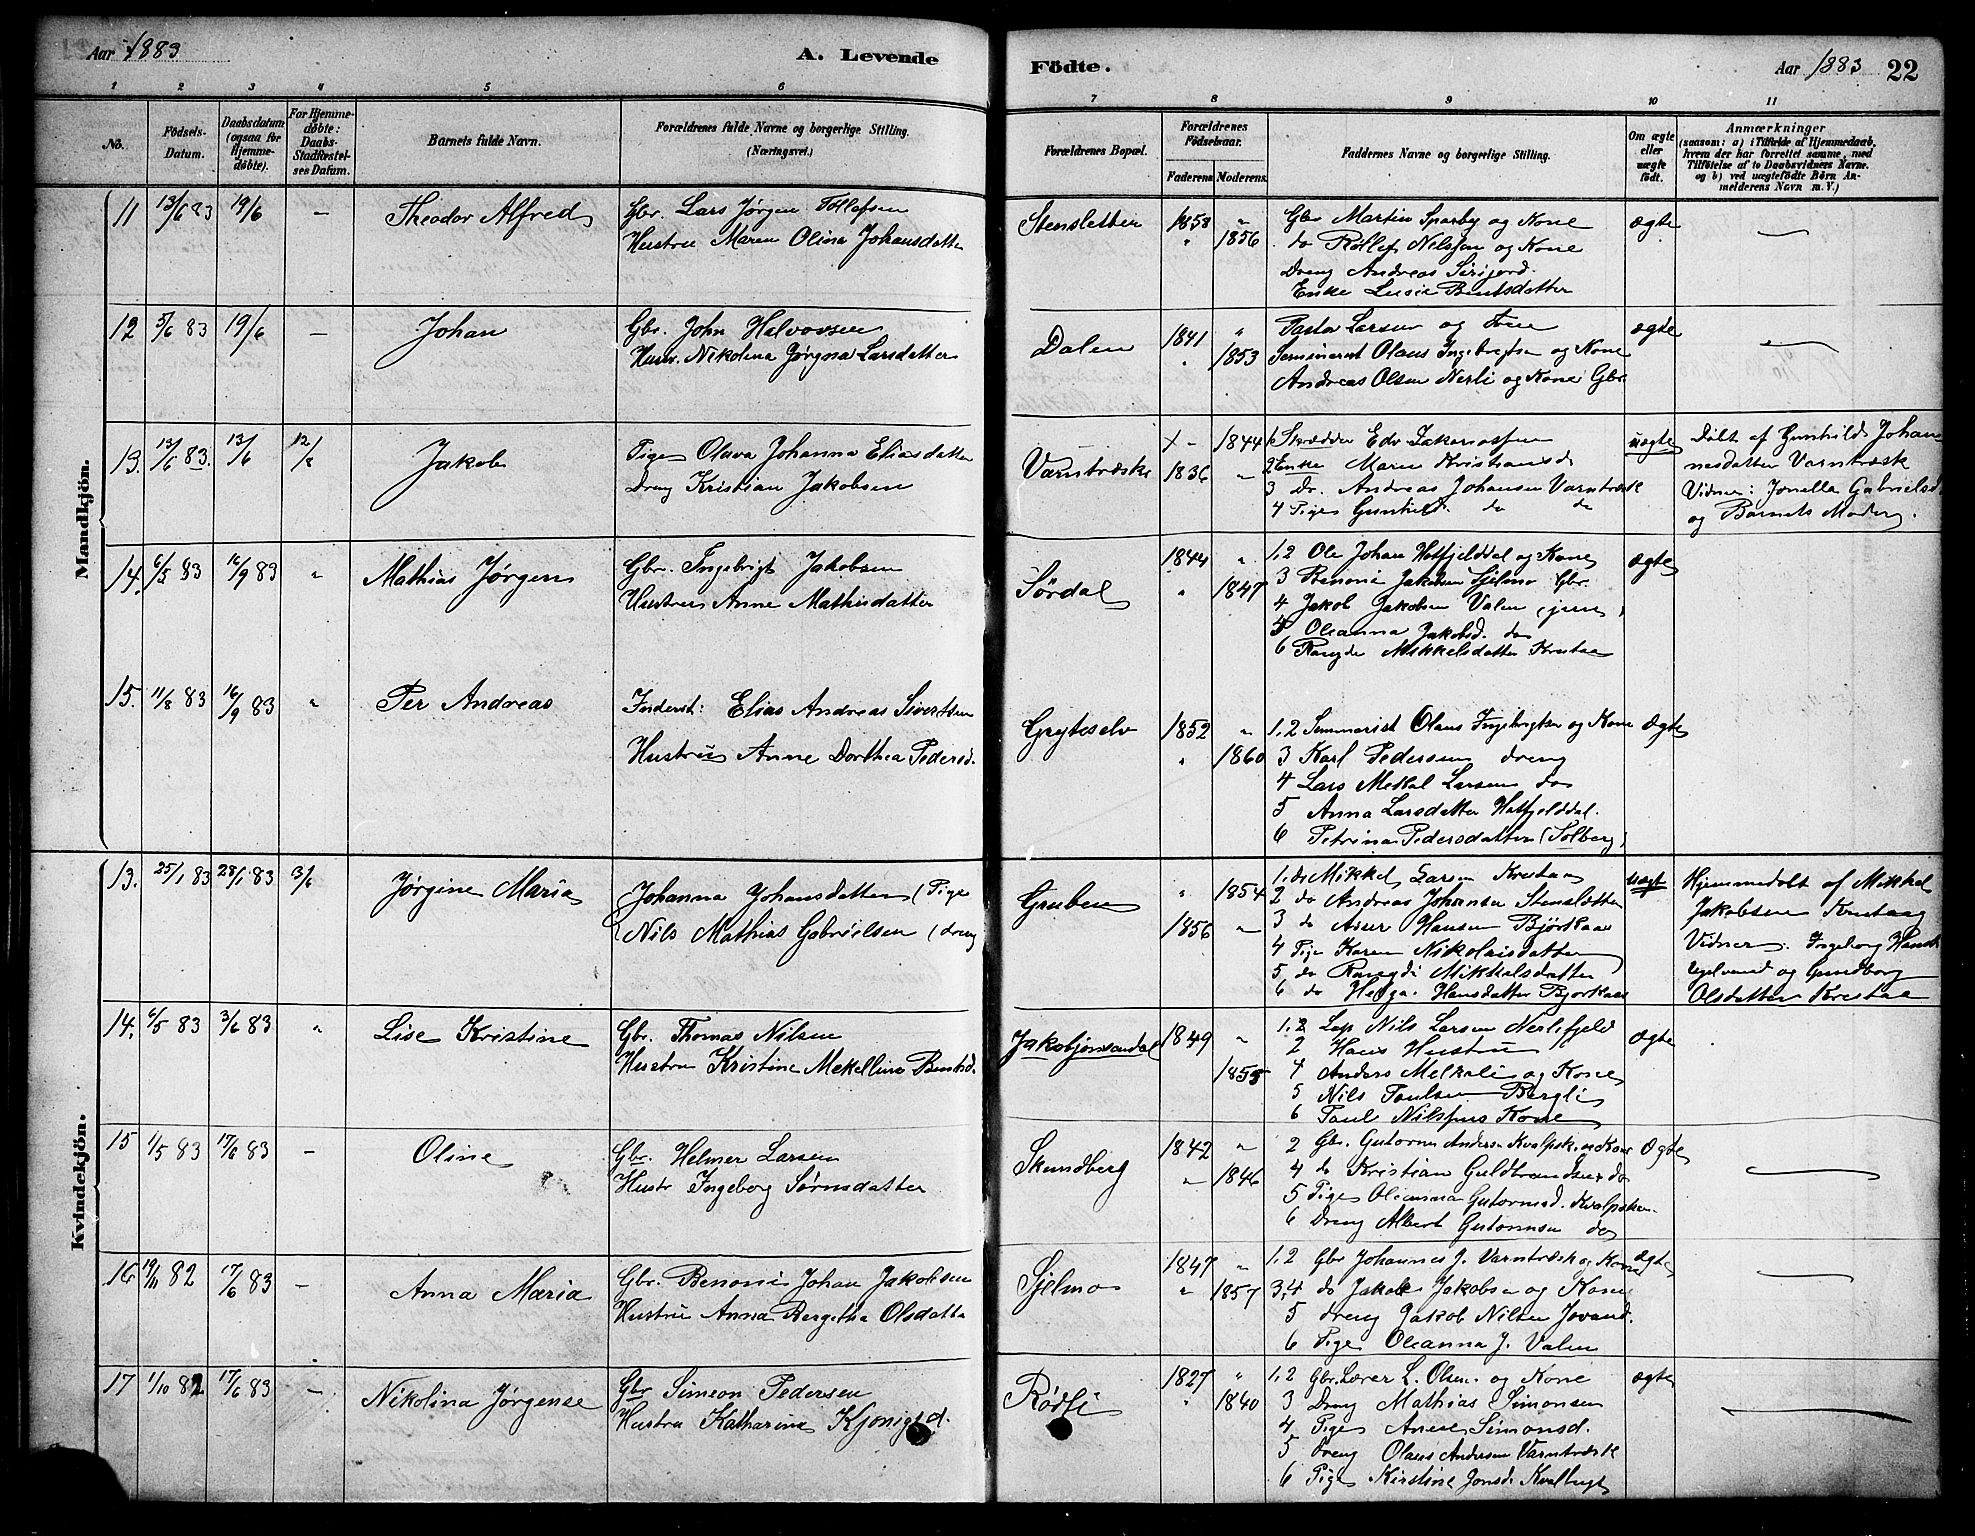 Aar 1883
A. Levende
Födte.
Aar 1883 22
1 2 3 4 5 6 7 8 9 10 11
No.
Födsels-
Datum.
Daabsdatum
(ogsaa for
Hjemme-
döbte).
For Hjemme-
döbte:
Daabs-
Stadfæstel-
ses Datum.
Barnets fulde Navn.
Forældrenes fulde Navne og borgerlige Stilling.
(Næringsvei.)
Forældrenes Bopæl.
Forældrenes
Födselsaar.
Faderens Moderens.
Faddernes Navne og borgerlige Stilling.
Om ægte
eller
uægte
födt.
Anmærkninger
(saasom: a) i Tilfælde af Hjemmedaab,
hvem der har forrettet samme, med
Tilföielse af to Daabsvidners Navne.
og b) ved uægtefödte Börn An-
melderens Navn m. V.)
Mandkjön.
11 13/6 83 19/6 — Theodor Alfred
Gbr. Lars Jørgen Tollefsen
Hustru Maren Olina Johansdatter
Stensletten 1858 "
" 1856
Gbr Martin Sparby og Kone
do Rollef Nilssen og Kone
Dreng Andreas
Enke Lusie Bentsdatter
ægte —
12 5/6 83 19/6 — Johan
Gbr. John Halvorsen
Hustr. Nikolina Jørgna Larsdatter
Dalen 1841 "
" 1853
Pastor Larsen og Frue
Seminarist Olaus Ingebrigtsen og Kone
Andreas Olsen Nerli og Kone Gbr
ægte —
13. 13/5 83. 13/6 12/8 Jakob
Pige Olava Johanna Eliasdatter
Dreng Kristian Jakobsen
Varntræsk × - 1844
1836 "
1 Skrædder Edv Zakariassen
2 Enke Maren Kristiansd
3 Dr. Andreas Johansen Varntræsk
4 Pige Gunhild do do
uægte
Døbt af Gunhild Johan
nesdatter Varntræsk
Vidner: Jonella Gabrielsd
og Barnets Moder.
14. 6/5 83 16/9 83 " Mathias Jørgen
Gbr. Ingebrigt Jakobsen
Hustru Anne Mathisdatter
Sørdal 1844 "
" 1847
1,2 Ole Johan Hatfjelddal og Kone
3 Benoni Jakobsen Sjelmo Gbr.
4 Jakob Jakobsen Valen (jun)
5 Oleanna Jakobsd. do
6 Mikkelsdatter
ægte
15. 11/8 83 16/9 83 " Per Andreas
Inderst: Elias Andreas Sivertsen
Hustru Anne Dorthea Pedersd.
Grytoselv 1852 "
" 1860
1,2 Semmarist Olaus Ingebrigtsen og Kone
3 Karl Pedersen dreng
4 Lars Mekal Larsen do
5 Anna Larsdatter Hatfjelddal.
6 Petrina Pedersdatter (Solberg)
Ægte
Kvindekjön.
13. 25/1 83 28/1 83 3/6 Jørgine Maria
Johanna Johansdatter (Pige
Nils Mathias Gabrielsen (dreng
Gruben " 1854
1856 "
1. do Mikkel Larsen
2 do Andreas Johansen Stensletten
3 do Hansen Bjørkaas
4 Pige Karen Nikolaisdatter
5 do Mikkelsdatter
6 do Helga Hansdatter Bjorkaas
uægt
Hjemmedøbt af Mikkal
Jakobsen
Vidner: Ingeborg
og Gundborg
Olsdatter
14. 6/5 83 3/6 83 " Lise Kristine
Gbr. Thomas Nilsen
Hustru Kristine Mekelline Bentsd.
Jakobjonsandal 1849 "
1855
1,2 Lap Nils Larsen Nerlifjeld
2 Hans Hustru
4 Anders Melkali og Kone
5 Nils Paulsen Bergli
6 Paul Nilssens Kone
ægte
15 1/5 83 17/6 83 — Oline
Gbr. Helmer Larsen
Hustr Ingeborg Sørnsdatter
Skundberg 1842 "
" 1846
2 Gbr. Gutorm Anderse Kvalpsk. og Kone
4 do Kristian Guldbrandsen do
5 Pige Olianna Gutormsd. Kvalpsken
6 Dreng Albert Gutormsen do
Ægte —
16. 19/11 82 17/6 83 — Anna Maria
Gbr. Benoni Johan Jakobsen
Hustru Anna Bergitha Olsdatte
Sjelmo 1847 "
" 1857
1,2 Gbr Johannes J. Varntræsk og Kone
3,4 do Jakob Jakobsen og Kone
5 dreng Jakob Nilsen Jovand.
6 Pige Oleanna J. Valen
ægte —
17 1/10 82 17/6 83 — Nikolina Jørgense
Gbr Simeon Pedersen
Hustru Katharina Kjønigsd.
Rødli 1827 "
" 1840
1,2 Gbr. Lærer L. Olsen og Kone
3 Dreng Mathias Simonsen
4 Pige Anne Simonsd.
5 Dreng Olaus Andersen Varntræsk
6 Pige Kirstine Jonsd. Kvalbugt
ægte —